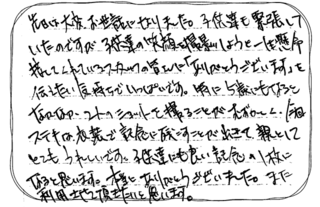 先日は大変お世話になりました。子供達も緊張して
いたのですが、子供達の笑顔を撮影しようと一生懸命
接してくれているスタッフの皆さんへ「ありがとうございます」を
伝えたい気持ちでいっぱいです。特に5歳にもなると
なかなかコートのショットを撮ることがむずかしく、今回
ステキな衣装で記念に残すことが出来て親として
とてもうれしいです。子供達にも良い記念の1枚に
なると思います。本当にありがとうございました。また
利用させて頂きたいと思います。